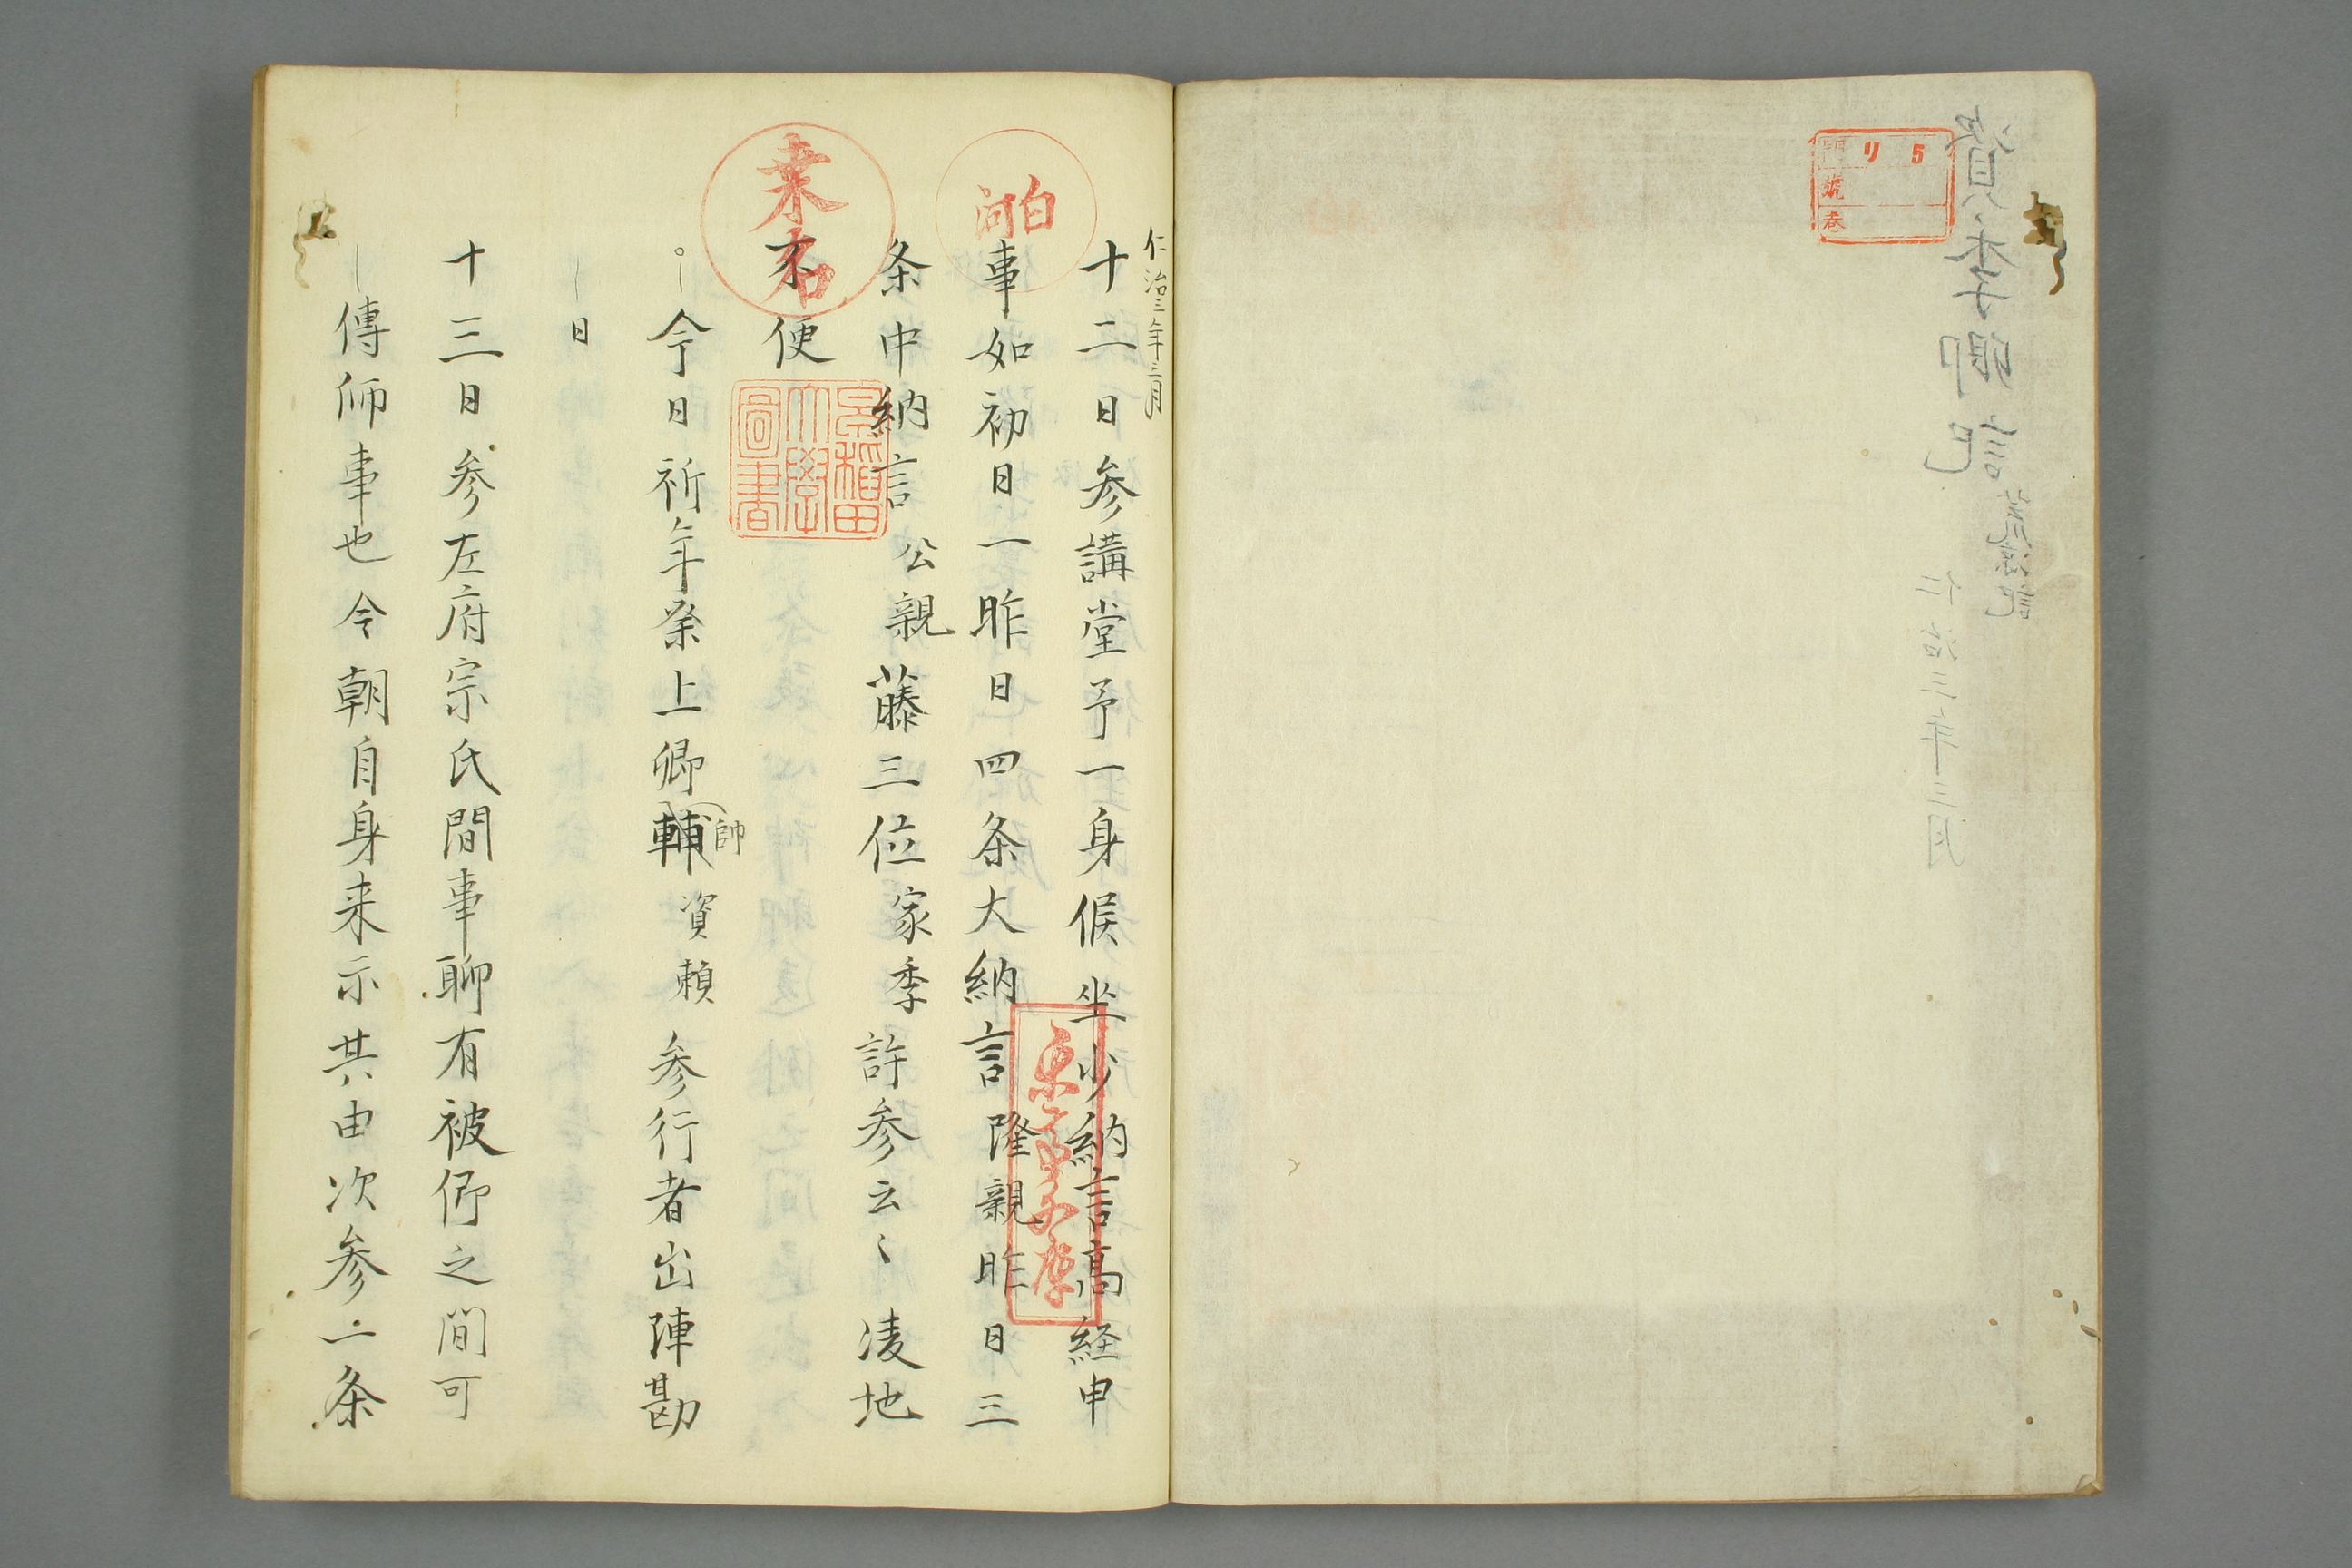 資季卿記
荒涼記
仁治三年三月
5
リ
門
號
巻
仁治三年三月
十二日参講堂予一身候坐少納言高経申
事如初日一昨日四条大納言隆親昨日三
条中納言公親藤三位家季許参云〻凌地
不便
今日祈年祭上卿輔資頼参行者出陣勘
帥
日
十三日参左府宗氏間事聊有被仰之間可
傳師事也令朝自身来示其由次参一条
白河
桒名
早稲田大學圖書